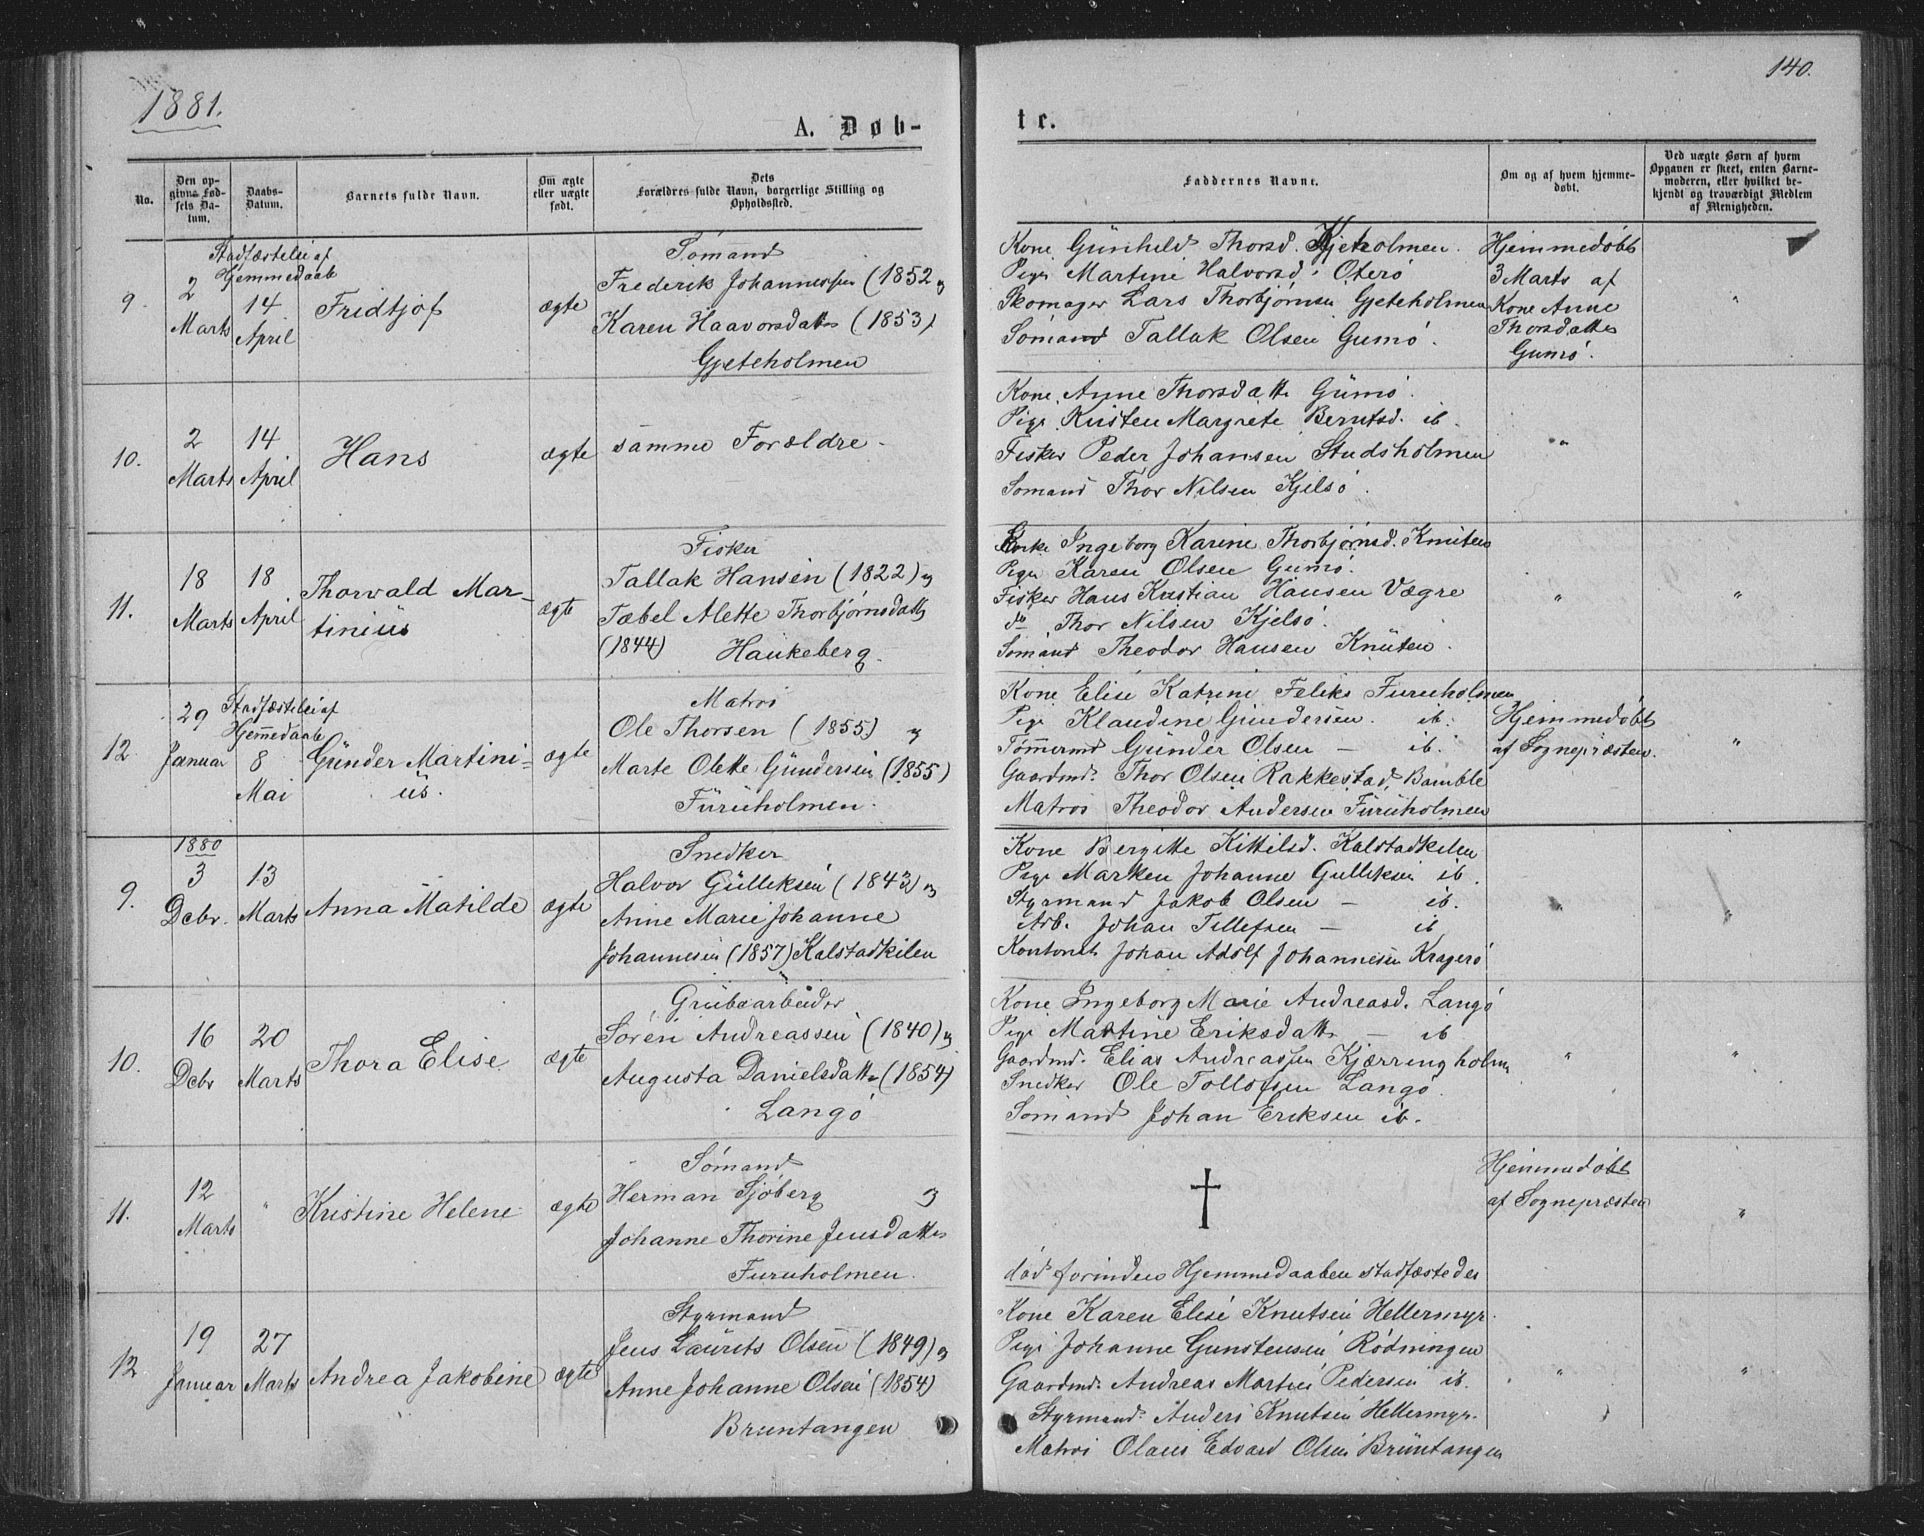 1881.
140.
A. Døb-
te.
No.
Den op-
givne Fød-
sels Da-
tum.
Daabs-
Datum.
Barnets fulde Navn.
Om ægte
eller uægte
født.
Dets
Forældres fulde Navn, borgerlige Stilling og
Opholdssted.
Faddernes Navne.
Om og af hvem hjemme-
døbt.
Ved uægte Børn af hvem
Opgaven er skeet, enten Barne-
moderen, eller hvilket be-
kjendt og troværdigt Medlem
af Menigheden.
Stadfæstelse af
Hjemmedaab
9.
2
Marts
14
April
Fridtjof
ægte
Sømand
Frederik Johannessen (1852 og
Karen Haavorsdatter (1853)
Gjeteholmen
Kone Günhild Thorsd. Gjeteholmen.
Pige Martine Halvorsd. Oterö
Skomager Lars Thorbjørnsen Gjeteholmen
Sømand Tallak Olsen Gumö.
Hjemmedøbt
3 Marts af
Kone Anne
Thorsdatter
Gumö.
"
10.
2
Marts
14
April
Hans
ægte
samme Forældre
Kone Anne Thorsdatt Gümö.
Pige Kirsten Margrete Berntsd. ib.
Fisker Peder Johansen Studsholmen
Sømand Thor Nilsen Kjelsö.
"
11.
18
Marts
18
April
Thorvald Mar-
tinius
ægte
Fisker
Tallak Hansen (1822) og
Tabel Alette Thorbjørnsdatter
(1844) Haukeberg.
Enke Ingeborg Karine Thorbjørnsd. Knuten
Pige Karen Olsen Gumö.
Fisker Hans Kristian Hansen Vægre
do Thor Nilsen Kjelsö.
Sømand Theodor Hansen Knuten.
"
"
12.
29
Januar
Stadfæstelse af
Hjemmedaab
8
Mai
Günder Martini-
us.
ægte
Matros
Ole Thorsen (1855) og
Marte Olette Gündersen (1855)
Furuholmen.
Kone Elise Katrine Feliks Furuholmen
Pige Klaudine Gundersen. ib.
Tømmermd Günder Olsen — ib.
Gaardmd. Thor Olsen Rakkestad, Bamble
Matros Theodor Andersen Furuholmen
Hjemmedøbt
af Sognepræsten.
"
9.
1880
3
Debr.
13
Marts
Anna Matilde
ægte
Snedker
Halvor Gulliksen (1843) og
Anne Marie Johanne
Johannesen (1857) Kalstadkilen
Kone Bergitte Kittilsd. Kalstadkilen
Pige Marken Johanne Gulliksen ib.
Styrmand Jakob Olsen — ib.
Arb. Johan Tellefsen — ib
Kontorist Johan Adolf Johannesen Kragerö
"
"
10.
16
Debr
20
Marts
Thora Elise
ægte
Grubearbeider
Sören Andreassen (1840) og
Augusta Danielsdatter (1854)
Langö
Kone Ingeborg Marie Andreasd. Langö
Pige Martine Eriksdatter — ib
Gaardmd. Elias Andreassen Kjærringholmen
Snedker Ole Tollofsen Langö.
Sømand Johan Eriksen ib.
"
"
11.
12
Marts
"
Kristine Helene
ægte
Sømand
Herman Sjöberg og
Johanne Thorine Jensdatter
Furuholmen.
†
død forinden Hjemmedaaben stadfæstedes
Hjemmedøbt
af Sognepræsten
"
12
19
Januar
27
Marts
Andrea Jakobine
ægte
Styrmand
Jens Laurits Olsen (1849) og
Anne Johanne Olsen (1854)
Bruntangen
Kone Karen Elise Knutsen Hellermyr.
Pige Johanne Gunstensen Rødningen
Gaardmd. Andreas Martin Pedersen ib.
Styrmand. Anders Knutsen Hellermyr.
Matros Olaus Edvard Olsen Brüntangen
"
"